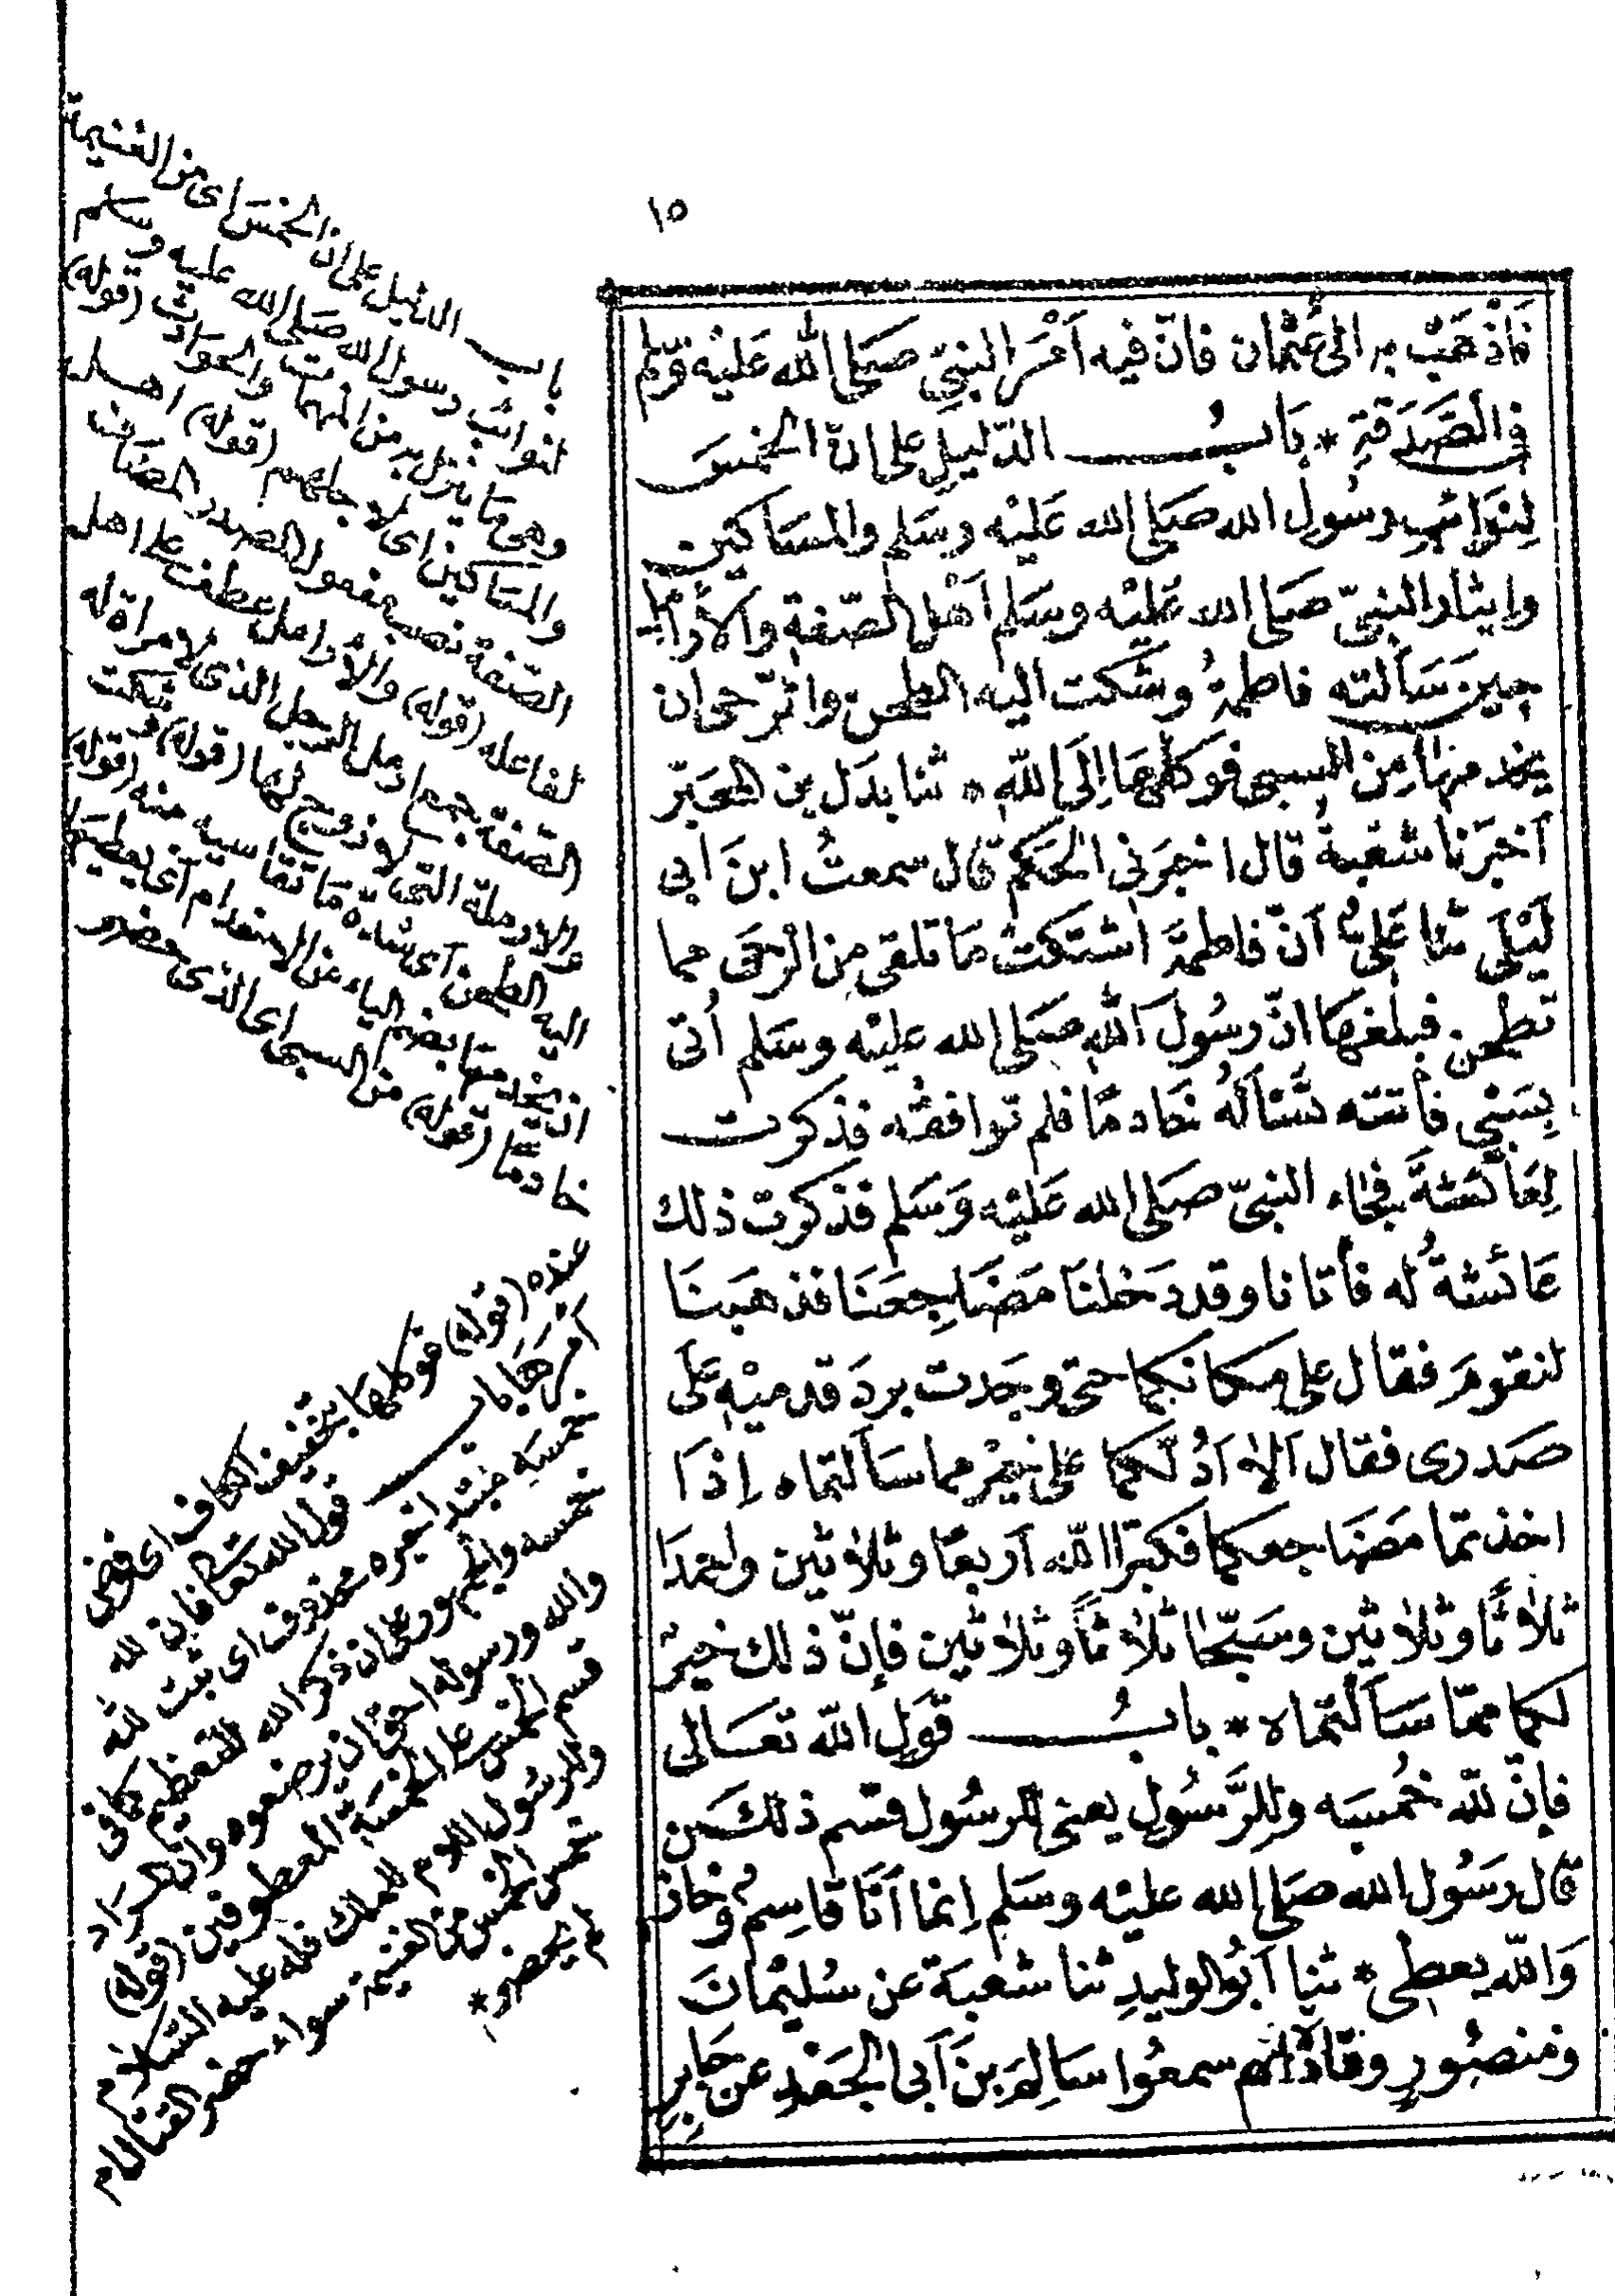 ١٥
فَاذْهَبْ به الى عُثمان فانّ فيه اَمْرَ النبيّ صَلى الله عَليْه وسَلم
فى الصَّدَقةِ * بَابُ الدّليلِ على ان الخمسَ
لِنَوَائبِ رسُول الله صَلى الله عَليْه وسَلم والمسَاكين
وايثار النبىّ صَلى الله عَليْه وسَلم اَهْل الصّفة والاَرامل
حِين سَاَلته فاطمةُ وشكت اليه الطحن والرّحى ان
يخدمهَا مِن السبى فوكلهَا اِلَى اللّهِ * ثنا بدَل بن المحَبّر
اَخبَرنا شعْبةُ قال اخبَرَنى الحَكم قال سمعتُ ابنَ ابى
لَيْلَى ثنا عَلىٌّ اَنّ فاطمةَ اشتكتْ مَا تلقى مِن الرحَى مما
تطحن فبلغهَا انّ رسُولَ اللّه صَلى الله عليْه وسَلم اُتى
بِسَبْيٍ فأتته تسْاَلُهُ خَادمًا فلم توافقْه فذكرت
لِعَائشةَ فجَاء النبىّ صَلى الله عَليْه وَسَلم فذكرت ذلك
عَائشةُ له فأتانا وقد دَخلنَا مَضَاجِعَنَا فذهَبنَا
لنقومَ فقال على مكانكما حتى وجَدت بردَ قدميْهِ عَلَى
صَدرى فقال اَلاَ اَدُلّكما عَلى خيْر مما سَاَلتماه اِذَا
اخذتما مَضَاجعكما فكبّرا اللّه اَربعًا وثلاثين واحمدَا
ثلاثًا وثلاثين وسَبّحَا ثلاثًا وثلاثين فاِنّ ذلك خيرٌ
لكما ممّا سَاَلتماه * بابُ قَولِ اللّه تعَالى
فاِنّ للّه خُمسَه وللرَّسُولِ يعنى للرسُول قسْم ذلك
قال رسُول الله صَلى الله عليْه وسَلم اِنما اَنَا قاسِمٌ وخازنٌ
وَاللّه يعطى * ثنا اَبُو الوليدِ ثنا شعبة عن سُليْمَانَ
وَمنصُورٍ وقتادَةَ اَنهم سمعُوا سَالِمَ بنَ اَبى الجَعْدِ عن جَابِرِ
باب الدليل على ان الخمسَ اى من الغنيمة
لنوائب رسول الله صَلى الله عليه وسَلم
وهى مَا ينزل به من المهمات والحوادث (قوله)
والمسَاكين اى لاجلهم (قوله) اهل
الصّفة نصب مفعول المصدر المضاف
لفاعله (قوله) والاَرامل عطف على اهل
الصّفة جمع ارمل الرجل الذى لا مراة له
والارملة التى لا زوج لها (قوله) وشكت
اليه الطحن اى شدة مَا تقاسيه منه (قوله)
ان يخدمهَا بضم الياء من الاخدام اى يعطيهَا
خادمًا (قوله) من السبى اى الذى حضر
عنده (قوله) فوكلها بتخفيف الكاف اى فوض
اَمرهَا باب قول الله تعَالى فان لله
خمسَه مبتدا خبره محذوف اى ثبت لله
خمسه والجمهور على ان ذكر الله للتعظيم كما فى
والله ورسوله احق ان يرضوه وان المراد
قسم الخمس على الخمسَة المعطوفين (قوله)
وللرسُول اللام للملك فله عليه السّلام
خمس الخمس من الغنيمة سواء حضر القتال ام
لم يحضره *